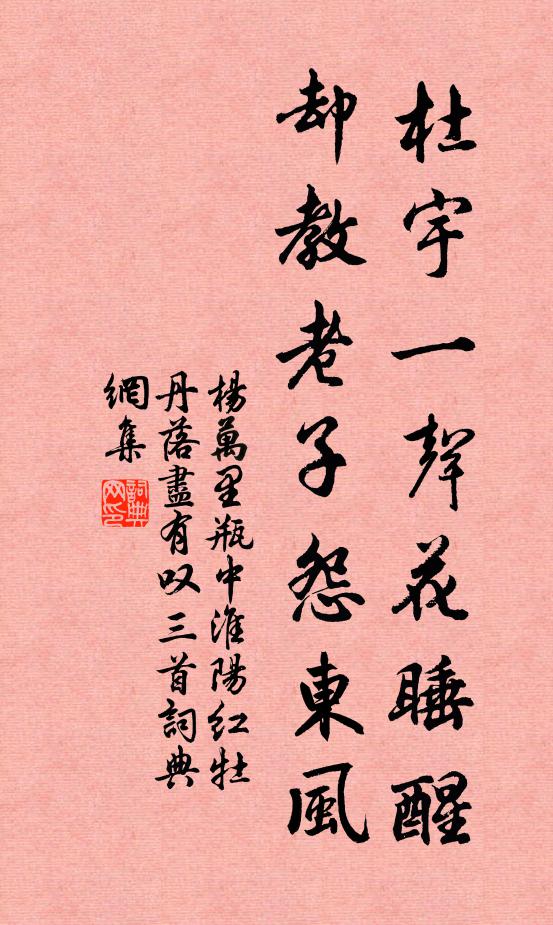 杜宇一聲花睡醒
却教老子怨東風
楊萬里瓶中淮陽紅牡
丹落盡有叹三首詞典
網集
詞典網印